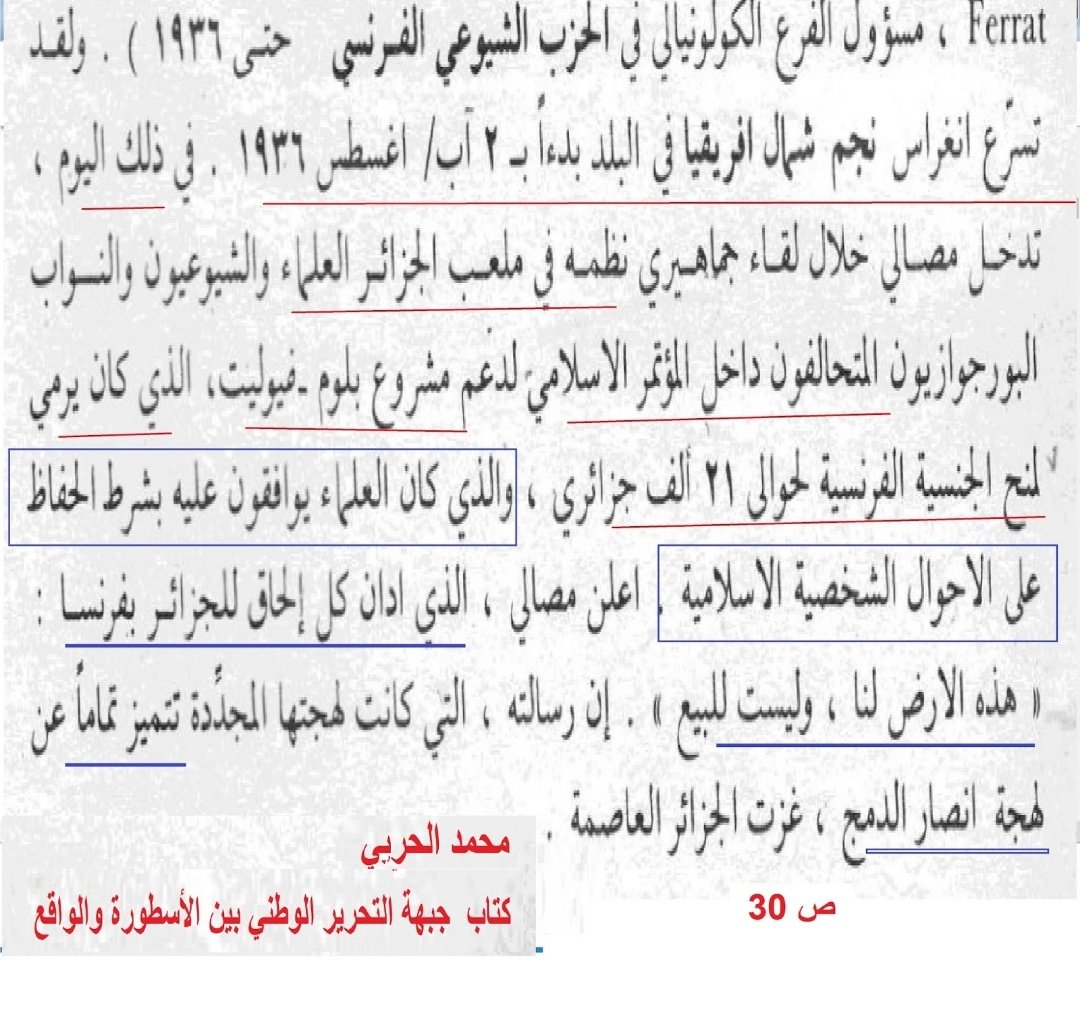 Ferrat ، مسؤول الفرع الكولونيالي في الحزب الشيوعي الفرنسي حتى ١٩٣٦ ) . ولقد
تسرّع انغراس نجم شمال افريقيا في البلد بدءاً بـ ٢ آب/ اغسطس ١٩٣٦ . في ذلك اليوم ،
تدخل مصالي خلال لقاء جماهيري نظمه في ملعب الجزائر العلماء والشيوعيون والنواب
البورجوازيون المتحالفون داخل المؤتمر الاسلامي لدعم مشروع بلوم ـ فيوليت، الذي كان يرمي
لمنح الجنسية الفرنسية لحوالى ٢١ ألف جزائري ، والذي كان العلماء يوافقون عليه بشرط الحفاظ
على الاحوال الشخصية الاسلامية . اعلن مصالي ، الذي ادان كل إلحاق للجزائر بفرنسا :
« هذه الارض لنا ، وليست للبيع » . إن رسالته ، التي كانت لهجتها المجدَّدة تتميز تماماً عن
لهجة انصار الدمج ، غزت الجزائر العاصمة .
محمد الحربي
كتاب جبهة التحرير الوطني بين الأسطورة والواقع
ص 30